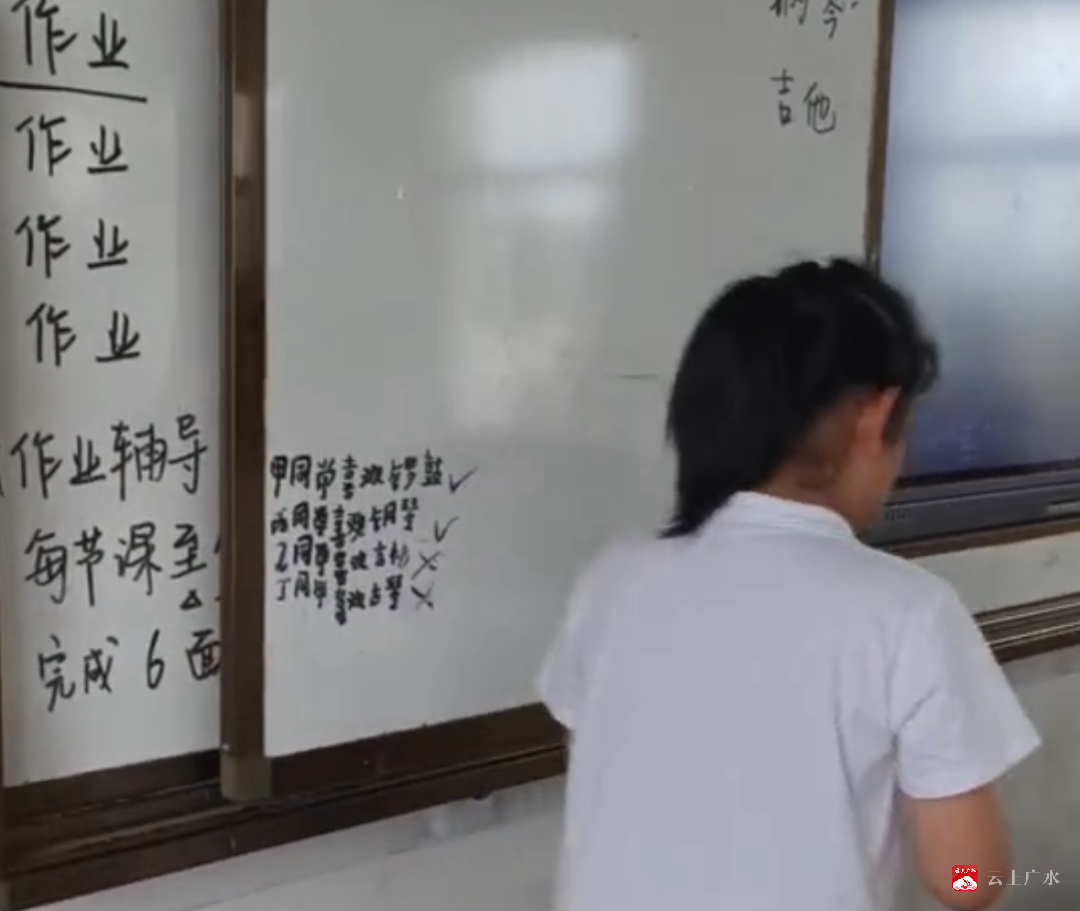 作业
作业
作业
作业
作业辅导
每节课至
完成6面
甲同学喜欢 ✓
丙同学喜欢钢琴 ✓
乙同学喜欢吉他 ×
丁同学喜欢古琴 ×
钢琴
吉他
云上广水